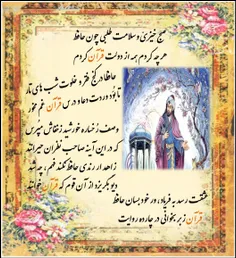 صبح خیزی و سلامت طلبی چون حافظ
هر چه کردم همه از دولت قرآن کردم
حافظا در کنج فقر و خلوت شب های تار
تا بود وردت دعا و درس قرآن غم مخور
وصف رخساره خورشید ز خفاش مپرس
که در این آینه صاحب نظران حیرانند
زاهد ار رندی حافظ نکند فهم چه شد
دیو بگریزد از آن قوم که قرآن خوانند
عشقت رسد به فریاد ار خود بسان حافظ
قرآن ز بر بخوانی در چارده روایت